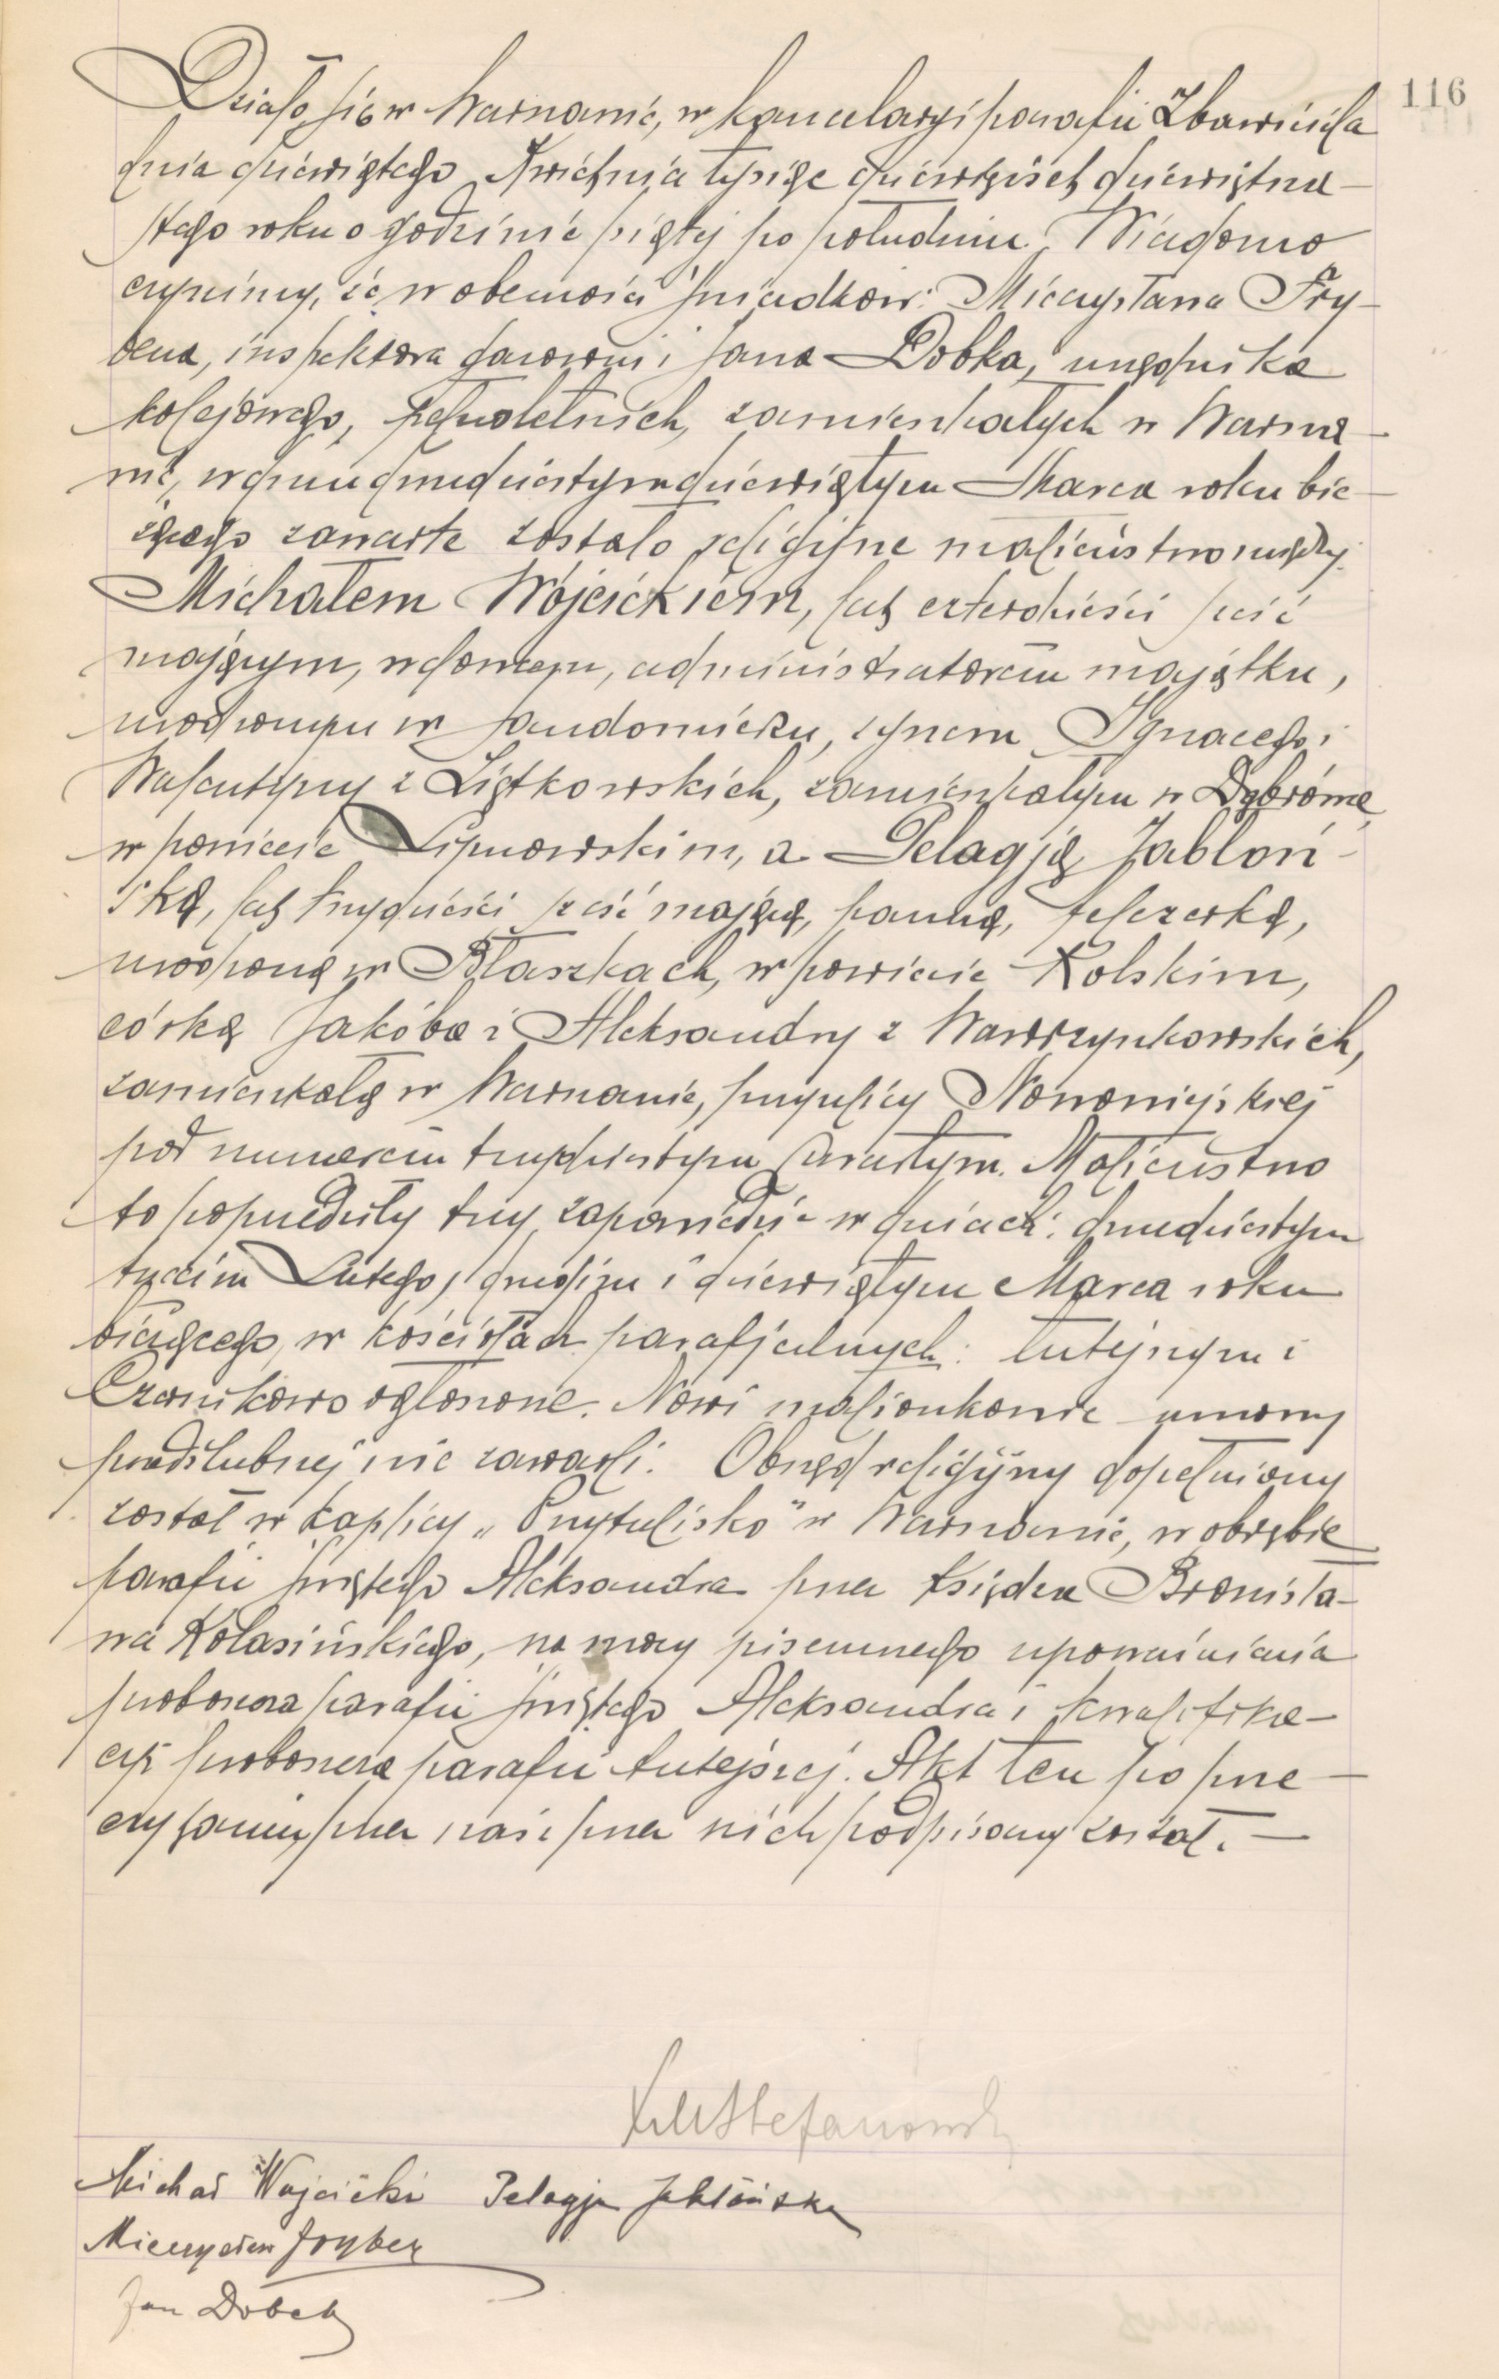 116
Działo się w Warszawie, w kancelaryi parafii Zbawiciela
dnia dziewiątego Kwietnia tysiąc dziewięćset dziewiętna-
stego roku o godzinie piątej po południu. Wiadomo
czynimy, że w obecności świadków: Mieczysława Fry-
beza, inspektora gazowni i Jana Dobka, urzędnika
kolejowego, pełnoletnich, zamieszkałych w Warsza-
wie, w dniu dwudziestym dziewiątym Marca roku bie-
żącego zawarte zostało religijne małżeństwo między
Michałem Wójcickiem, lat czterdzieści sześć
mającym, wdowcem, administratorem majątku,
urodzonym w Sandomierzu, synem Ignacego i
Walentyny z Ziętkowskich, zamieszkałym w
w powiecie Lipnowskim, a Pelagją Jabłoń-
ską, lat trzydzieści sześć mającą, panną, felczerką,
urodzoną w Błaszkach, w powiecie Kolskim,
córką Jakóba i Aleksandry z Wawrzynkowskich,
zamieszkałą w Warszawie, przy ulicy Nowowiejskiej
pod numerem trzydziestym czwartym. Małżeństwo
to poprzedziły trzy zapowiedzie w dniach: dwudziestym
trzecim Lutego, drugim i dziewiątym Marca roku
bieżącego, w kościołach parafjalnych: tutejszym i
Czernikowo ogłoszone. Nowi małżonkowie umowy
przedślubnej nie zawarli. Obrzęd religijny dopełniony
został w kaplicy „Przytulisko" w Warszawie, w obrębie
parafii świętego Aleksandra przez księdza Bronisła-
wa Kolasińskiego, na mocy pisemnego upoważnienia
proboszcza parafii świętego Aleksandra i kwalifika-
cyi proboszcza parafii tutejszej. Akt ten po prze-
czytaniu, przez nas i przez nich podpisany został. —
Stefanowski
Michał Wójcicki Pelagja Jabłońska
Mieczysław Frybez
Jan Dobek